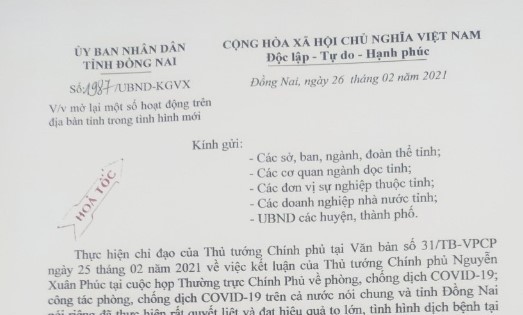 ỦY BAN NHÂN DÂN
TỈNH ĐỒNG NAI
CỘNG HÒA XÃ HỘI CHỦ NGHĨA VIỆT NAM
Độc lập - Tự do - Hạnh phúc
Số: 1987/UBND-KGVX
Đồng Nai, ngày 26 tháng 02 năm 2021
V/v mở lại một số hoạt động trên
địa bàn tỉnh trong tình hình mới
Kính gửi:
- Các sở, ban, ngành, đoàn thể tỉnh;
- Các cơ quan ngành dọc tỉnh;
- Các đơn vị sự nghiệp thuộc tỉnh;
- Các doanh nghiệp nhà nước tỉnh;
- UBND các huyện, thành phố.
HOẢ TỐC
Thực hiện chỉ đạo của Thủ tướng Chính phủ tại Văn bản số 31/TB-VPCP
ngày 25 tháng 02 năm 2021 về việc kết luận của Thủ tướng Chính phủ Nguyễn
Xuân Phúc tại cuộc họp Thường trực Chính Phủ về phòng, chống dịch COVID-19;
công tác phòng, chống dịch COVID-19 trên cả nước nói chung và tỉnh Đồng Nai
nói riêng đã thực hiện rất quyết liệt và đạt hiệu quả to lớn, tình hình dịch bệnh tại